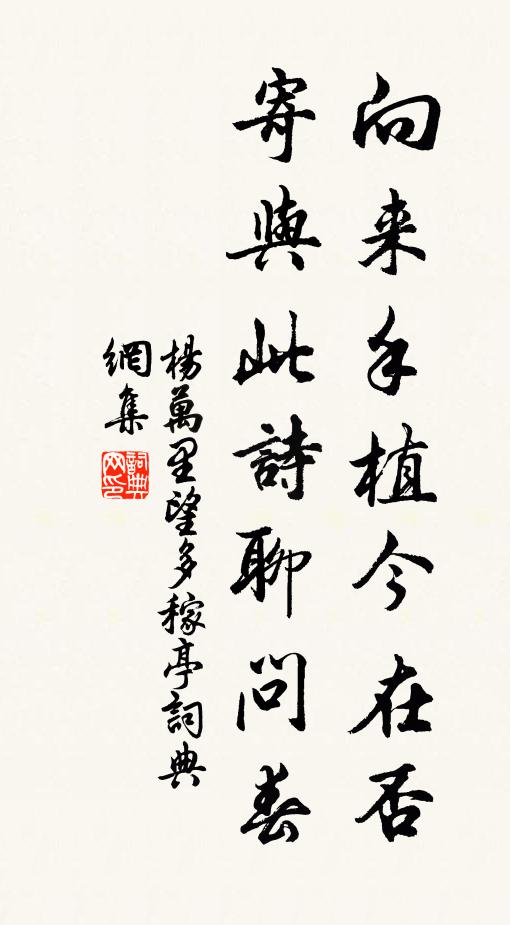 向来手植今在否
寄與此詩聊問春
楊萬里望多稼亭詞典
網集
詞典网印